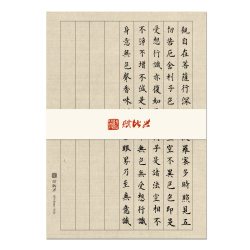 觀自在菩薩行深羅蜜多時照見五
切苦厄舍利子色空不異色色即是
受想行識亦復如子是諸法空相不
不淨不增不減是色無受想行識
身意無色聲香味眼界乃至無意識